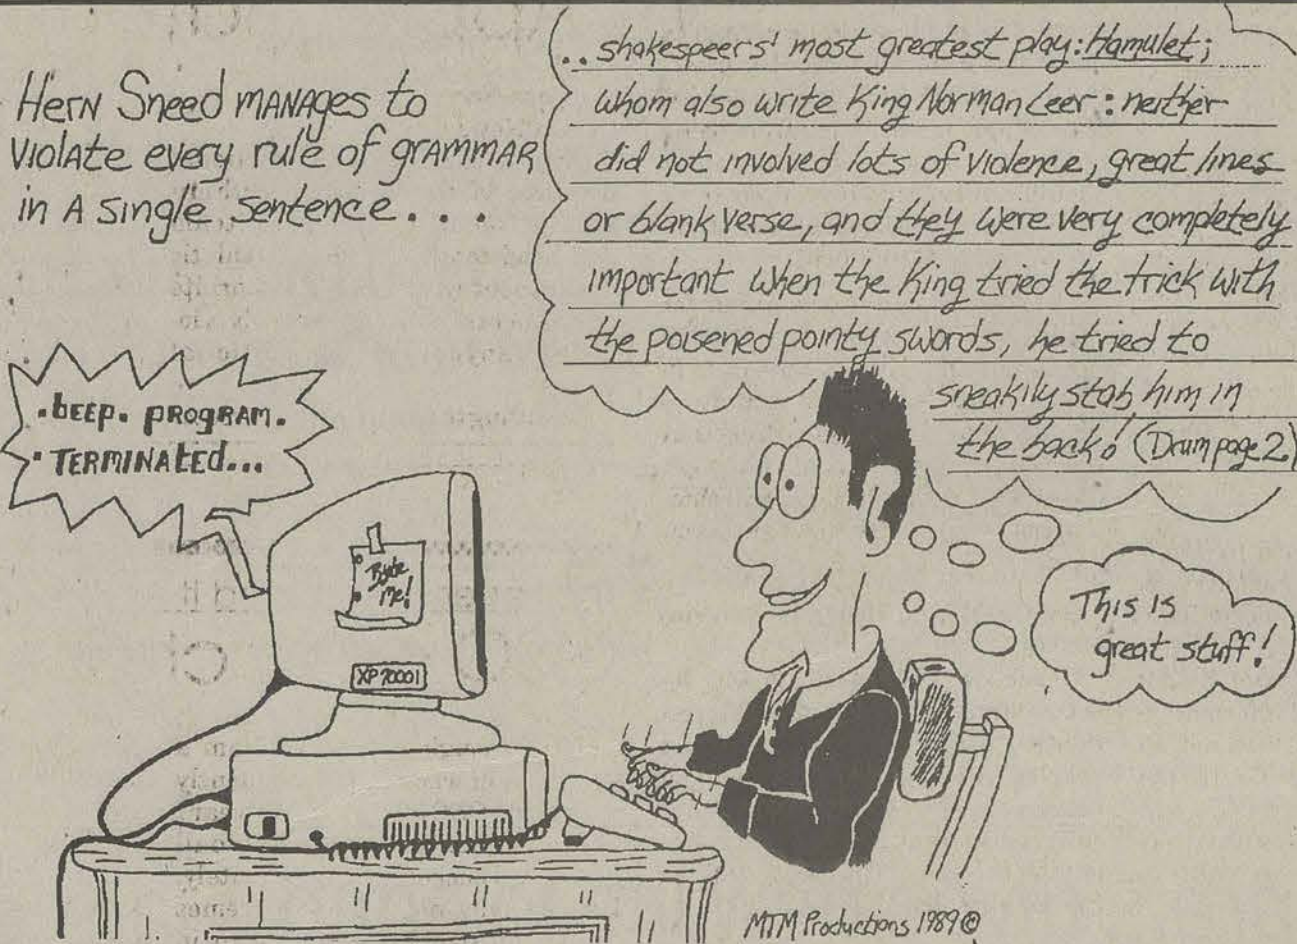 Hern Sneed MANAGes to
VIOLAte every rule of grAMMAR
in A single sentence...
.. shakespeers' most greatest play: Hamulet;
whom also write King Norman Leer: neither
did not involved lots of violence, great lines
or blank verse, and they were very completely
important when the King tried the trick with
the poisened pointy swords, he tried to
sneakily stab him in
the back! (Dram page 2.)
.bEEP. PROGRAM.
. TERMINAtEd...
Byte
Me!
XP70001
This is
great stuff!
MTM Productions 1989©